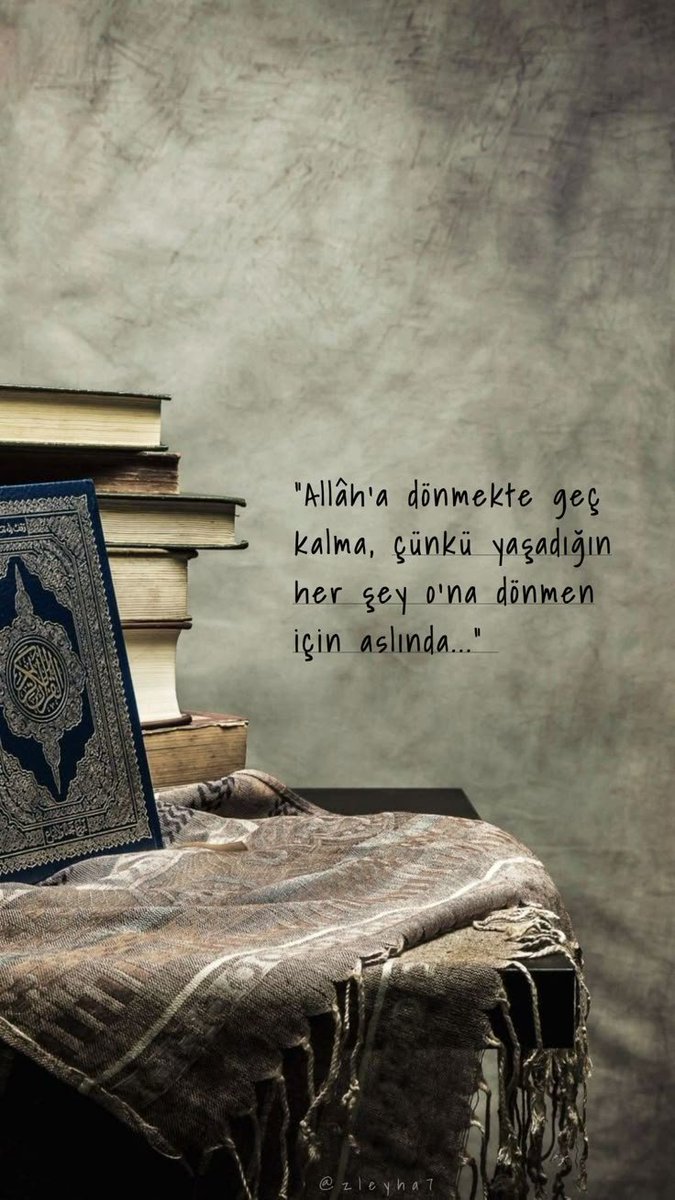 "Allâh'a dönmekte geç
kalma, çünkü yaşadığın
her şey o'na dönmen
için aslında..."
@zleyha7